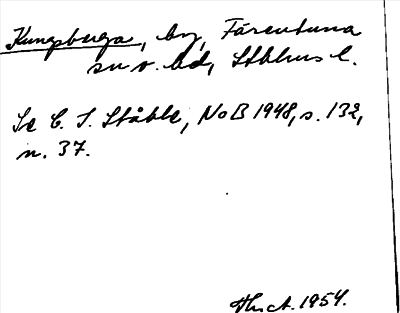 Kungsberga, by, Färentuna
sn o. hd, Sthlms l.
Se C. I. Ståhle, NoB 1948, s. 132,
n. 37.
1954.